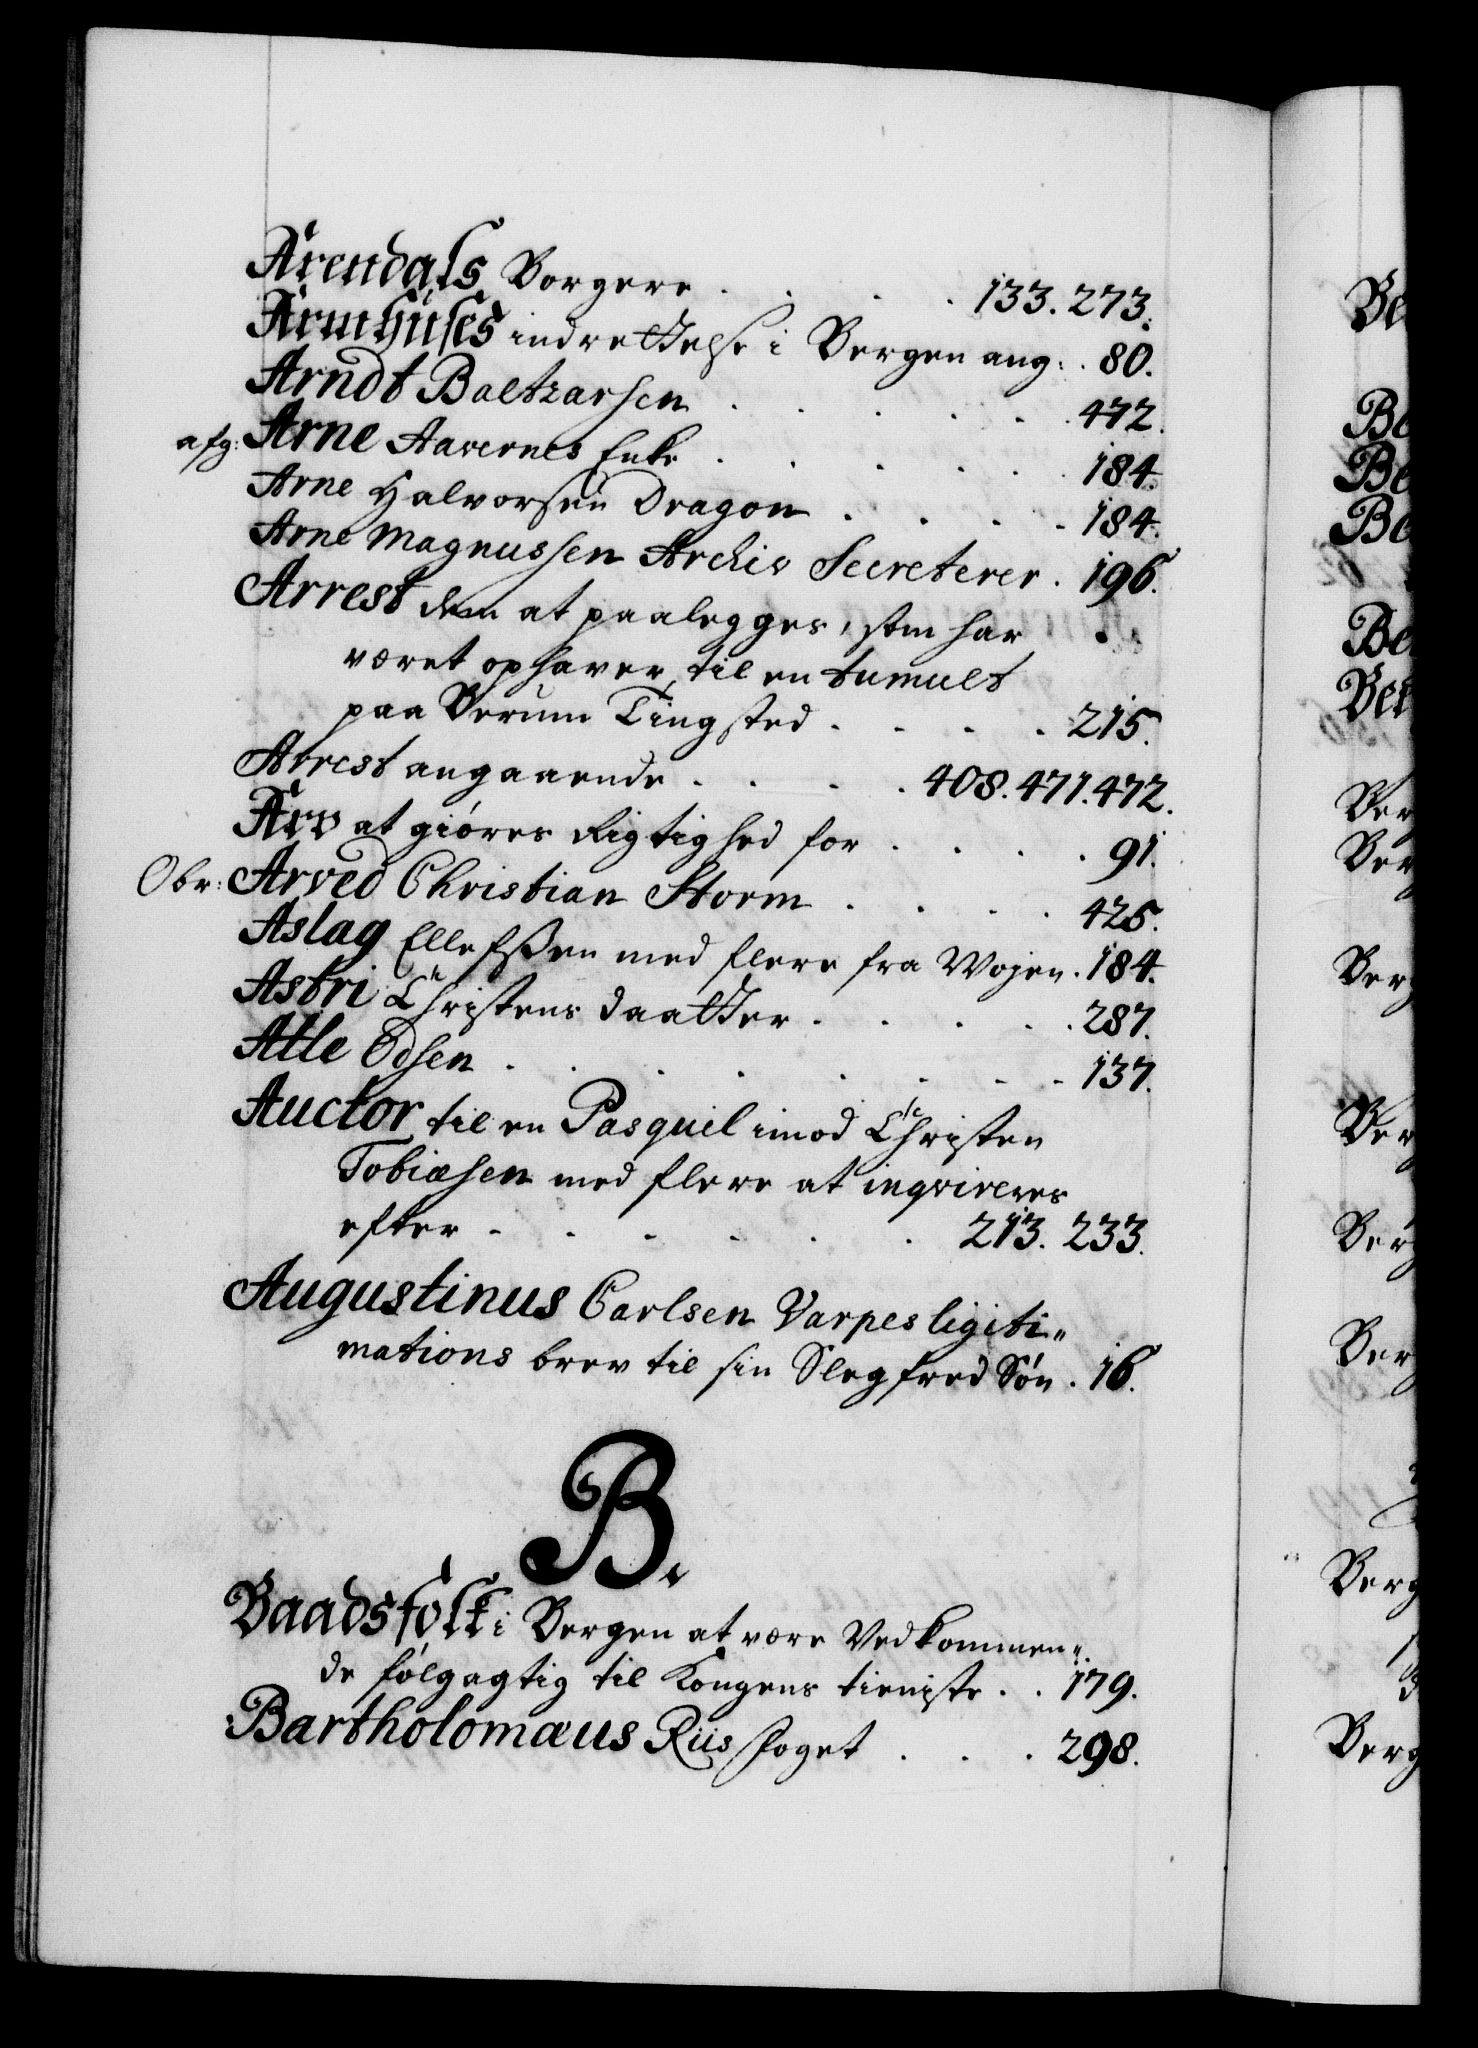 Arendals Borgere . . . . 133. 273.
Armhuses indrettelse i Bergen ang: . 80.
Arndt Baltzarsen . . . . . . 472.
afg: Arne Aavernes Enke . . . . . . 184.
Arne Halvorsen Dragon . . . . 184.
Arne Magnussen Archiv Secreterer . 196.
Arrest dem at paalegges, som har
været ophaver til en tumult
paa Berum Tingsted . . . . 215.
Arrest angaaende . . . . 408. 471. 472.
Arv at giøres Rigtighed for . . . . 91.
Obr: Arved Christian Storm . . . . 425.
Aslag Ellefssen med flere fra Wojen . 184.
Astri Christens daatter . . . . . 287.
Atle Odsen . . . . . . . . 137.
Auctor til en Pasquil imod Christen
Tobiæsen med flere at inqvireres
efter . . . . . . 213. 233.
Augustinus Carlsen Varpes ligiti„
mations brev til sin Slegfred Søn . 16.
B.
Baadsfolk i Bergen at være Vedkommen„
de følgagtig til Kongens tieniste . . 179.
Bartholomæus Riis foget . . . 298.